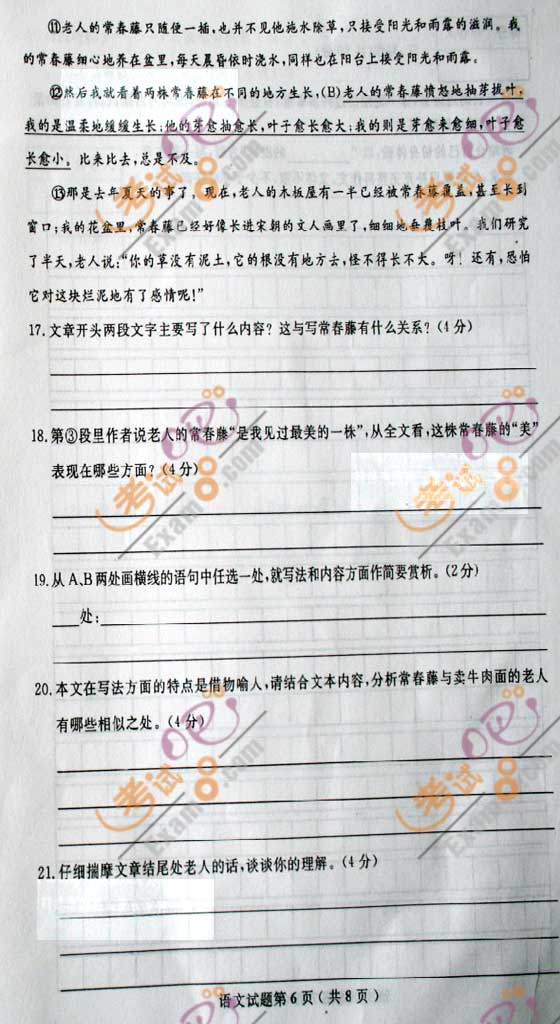 ⑪老人的常春藤只随便一插，也并不见他施水除草，只接受阳光和雨露的滋润。我
的常春藤细心地养在盆里，每天晨昏依时浇水，同样也在阳台上接受阳光和雨露。
⑫然后我就看着两株常春藤在不同的地方生长，(B)老人的常春藤愤怒地抽芽拔叶，
我的是温柔地缓缓生长；他的芽愈抽愈长，叶子愈长愈大；我的则是芽愈来愈细，叶子愈
长愈小。比来比去，总是不及。
⑬那是去年夏天的事了。现在，老人的木板屋有一半已经被常春藤覆盖，甚至长到
窗口；我的花盆里，常春藤已经好像长进宋朝的文人画里了，细细地垂覆枝叶。我们研究
了半天，老人说：“你的草没有泥土，它的根没有地方去，怪不得长不大。呀！还有，恐怕
它对这块烂泥地有了感情呢！”
17.文章开头两段文字主要写了什么内容？这与写常春藤有什么关系？(4分)
18.第③段里作者说老人的常春藤“是我见过最美的一株”，从全文看，这株常春藤的“美”
表现在哪些方面？(4分)
19.从A、B两处画横线的语句中任选一处，就写法和内容方面作简要赏析。(2分)
___处：
20.本文在写法方面的特点是借物喻人，请结合文本内容，分析常春藤与卖牛肉面的老人
有哪些相似之处。(4分)
21.仔细揣摩文章结尾处老人的话，谈谈你的理解。(4分)
语文试题第6页(共8页)
考试吧
Exam8.com
考试吧
Exam8.com
考试吧
Exam8.com
考试吧
Exam8.com
考试吧
Exam8.com
考试吧
Exam8.com